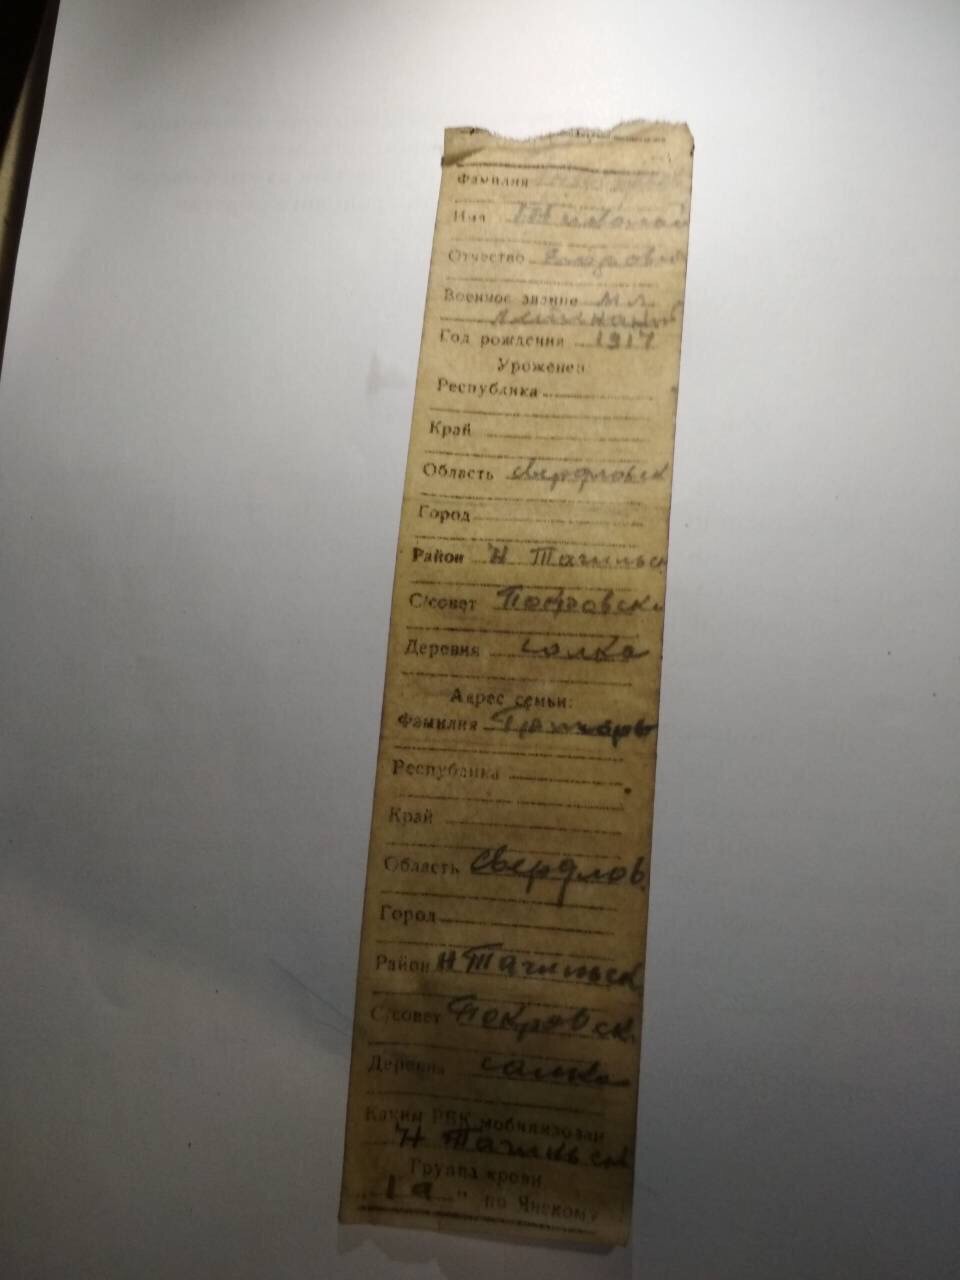 Фамилия
Имя Николай
Отчество
Военное звание мл.
лейтенант
Год рождения 1917
Уроженец
Республика
Край
Область Свердловск
Город
Район Н Тагильск
С/совет Покровски
Деревня
Адрес семьи:
Фамилия
Республика
Край
Область Свердлов
Город
Район Н Тагильск
С/совет Покровск
Деревня
Каким РВК мобилизован
Н Тагильск
Группа крови
„ 1а " по Янскому